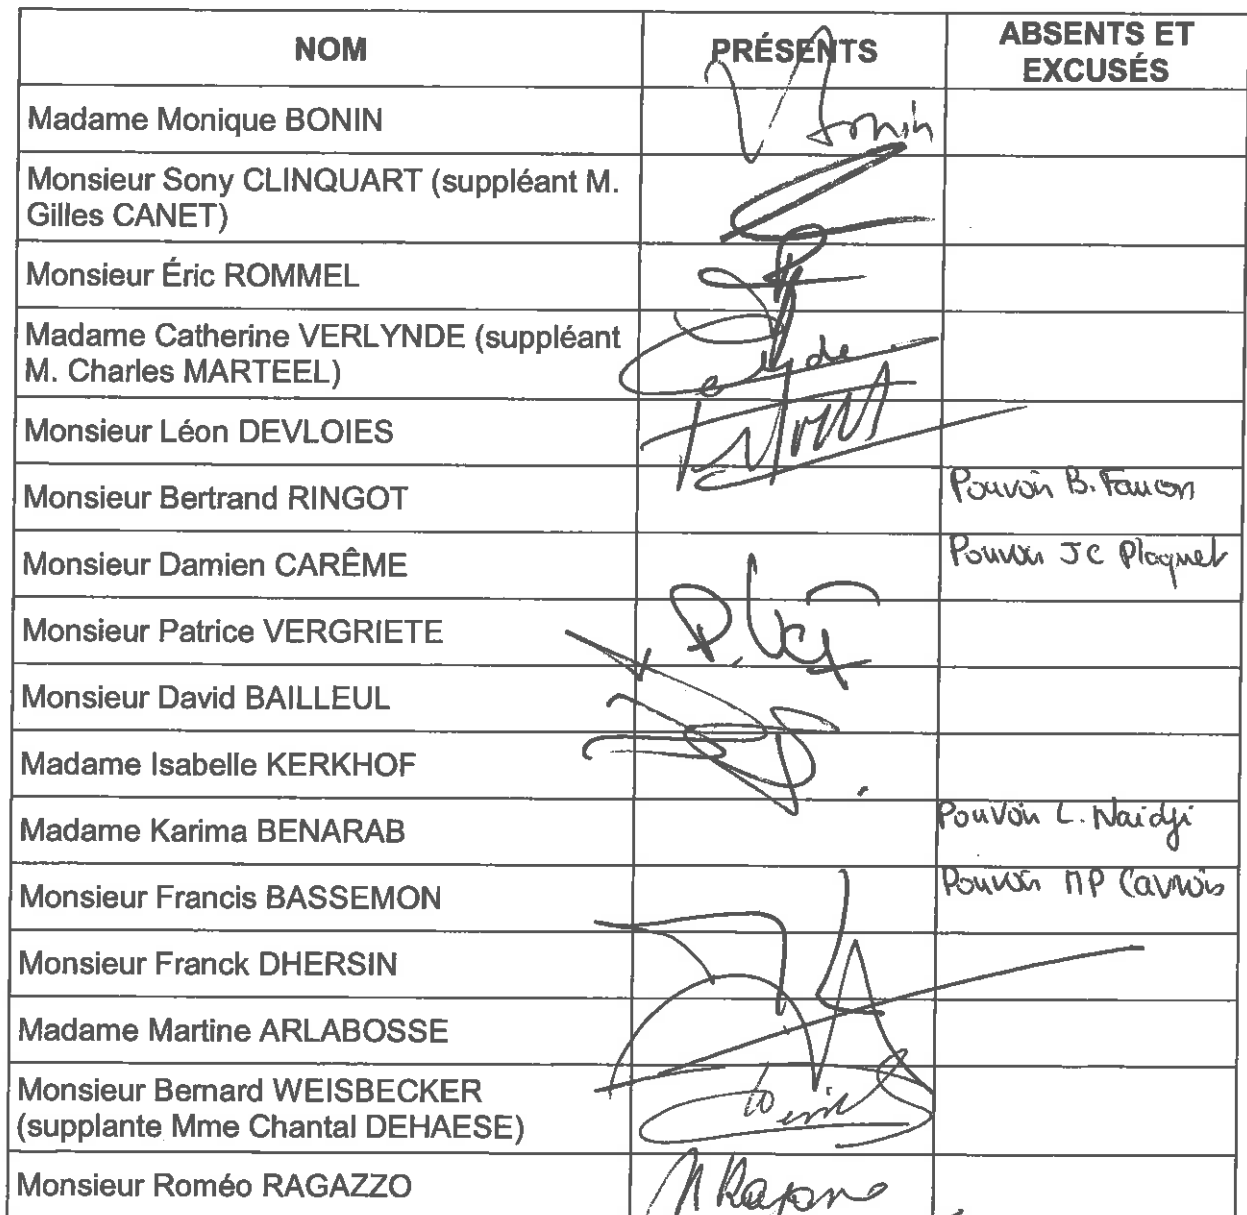 NOM
PRÉSENTS
ABSENTS ET
EXCUSÉS
Madame Monique BONIN
Monsieur Sony CLINQUART (suppléant M.
Gilles CANET)
Monsieur Éric ROMMEL
Madame Catherine VERLYNDE (suppléant
M. Charles MARTEEL)
Monsieur Léon DEVLOIES
Monsieur Bertrand RINGOT
Pouvoir B. Faucon
Monsieur Damien CARÊME
Pouvoir JC Plaquet
Monsieur Patrice VERGRIETE
Monsieur David BAILLEUL
Madame Isabelle KERKHOF
Madame Karima BENARAB
Pouvoir L. Naidji
Monsieur Francis BASSEMON
Pouvoir MP Cavrois
Monsieur Franck DHERSIN
Madame Martine ARLABOSSE
Monsieur Bernard WEISBECKER
(supplante Mme Chantal DEHAESE)
Monsieur Roméo RAGAZZO